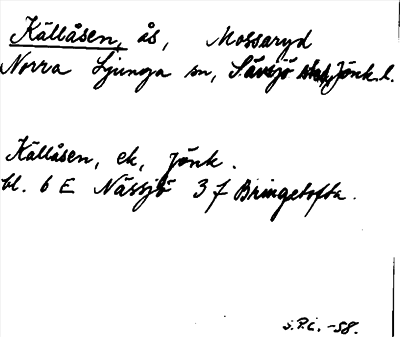 Källåsen, ås, Mossaryd
Norra Ljunga sn, Sävsjö Jönk. l.
Källåsen, ek, Jönk.
bl. 6 E Nässjö 3 f Bringetofta.
S.P.C. -58.